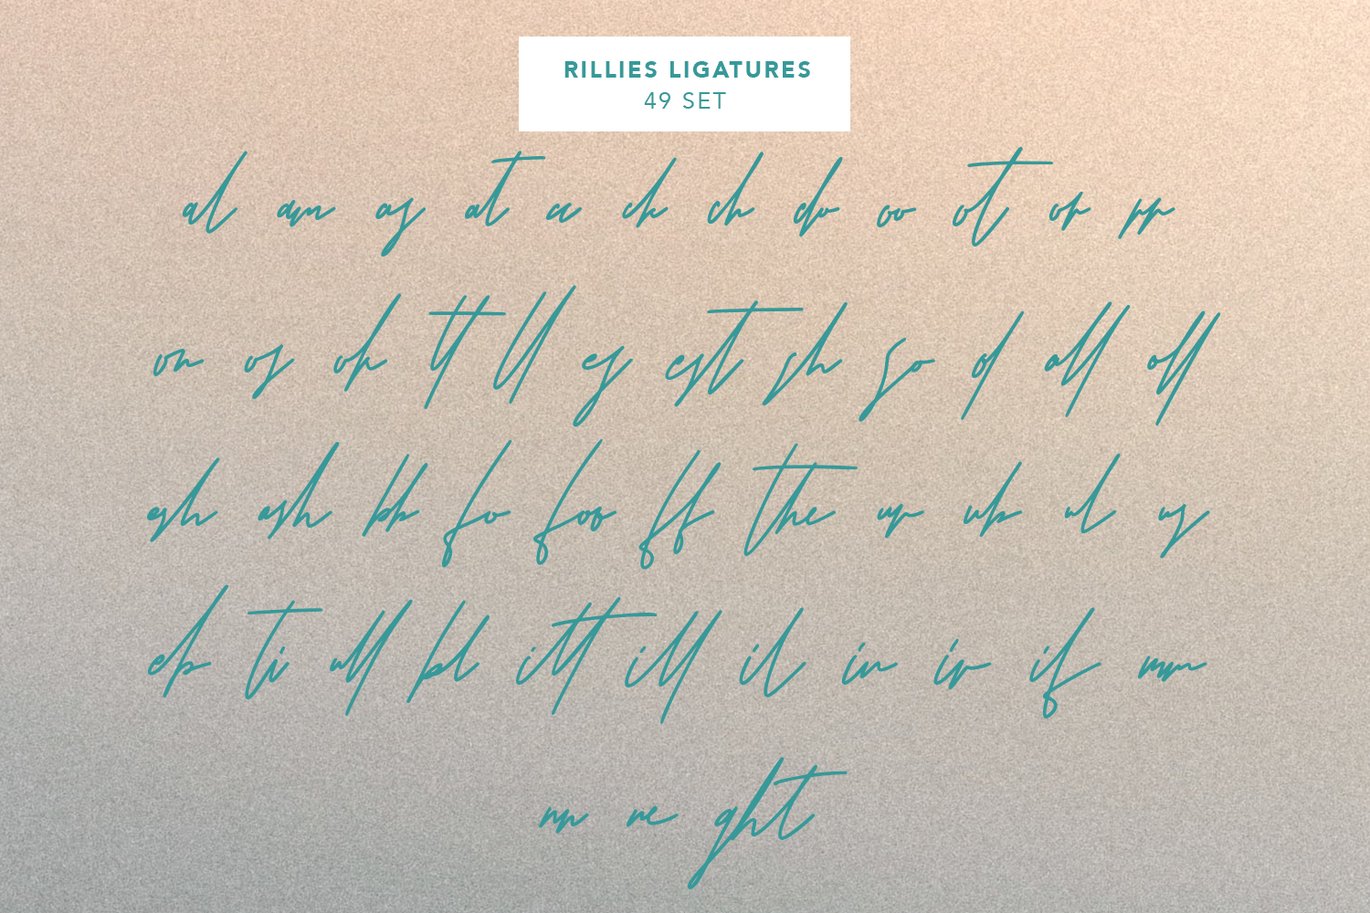 RILLIES LIGATURES
49 SET
al am as at cc ck ch do oo ot op pp
on os ok tt ll es est sh so of all off
ash bb fo foo ff the up ub ul us
eb ti ull bl itt ill il in ip if mm
nn re ght